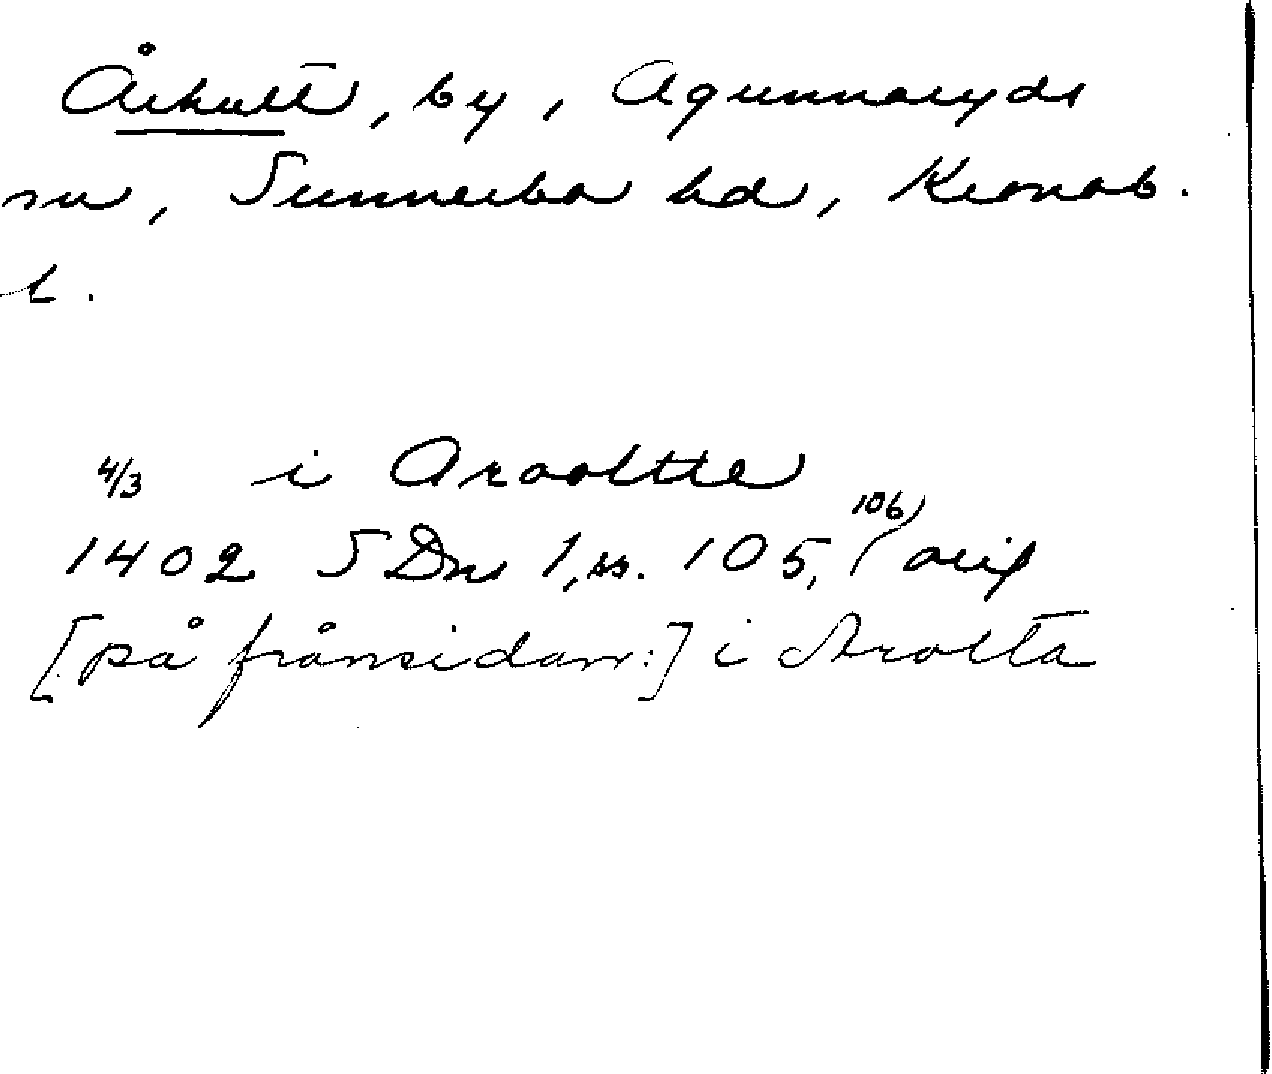 Århult, by, Agunnaryds
sn, Sunnerbo hd, Kronob.
l.
4/3 i Arooltte
1402 SDns 1, ss. 105, 106) orig
[på frånsidan:] i Arolta